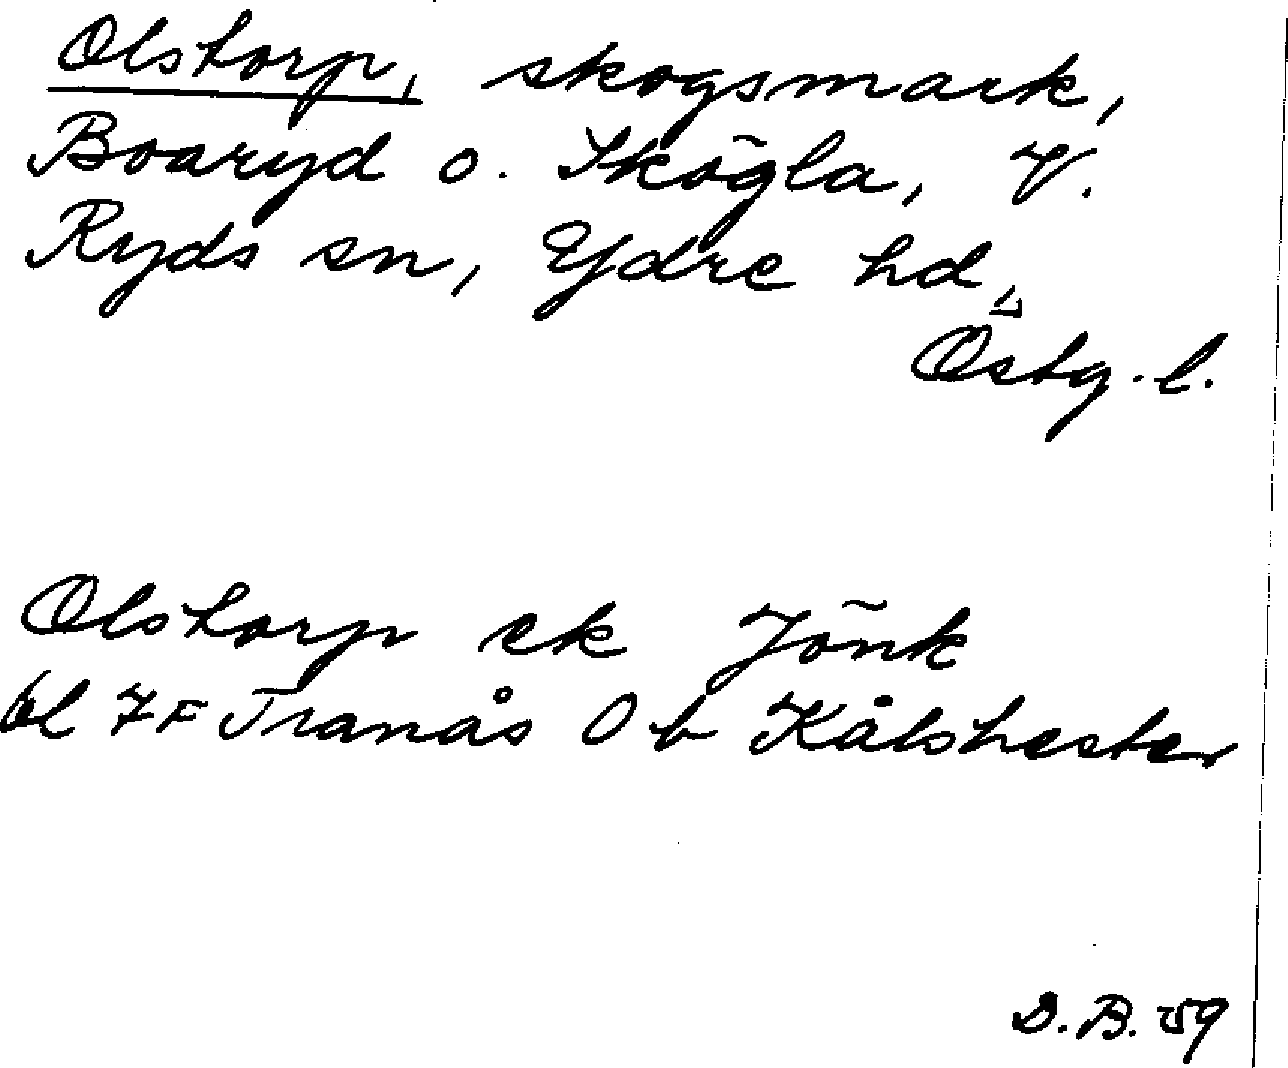 Olstorp, skogsmark,
Boaryd o. Skögla, V.
Ryds sn, Ydre hd,
Östg. l.
Olstorp ek Jönk
bl 7F Tranås 0b Kålshester
D.B. 59